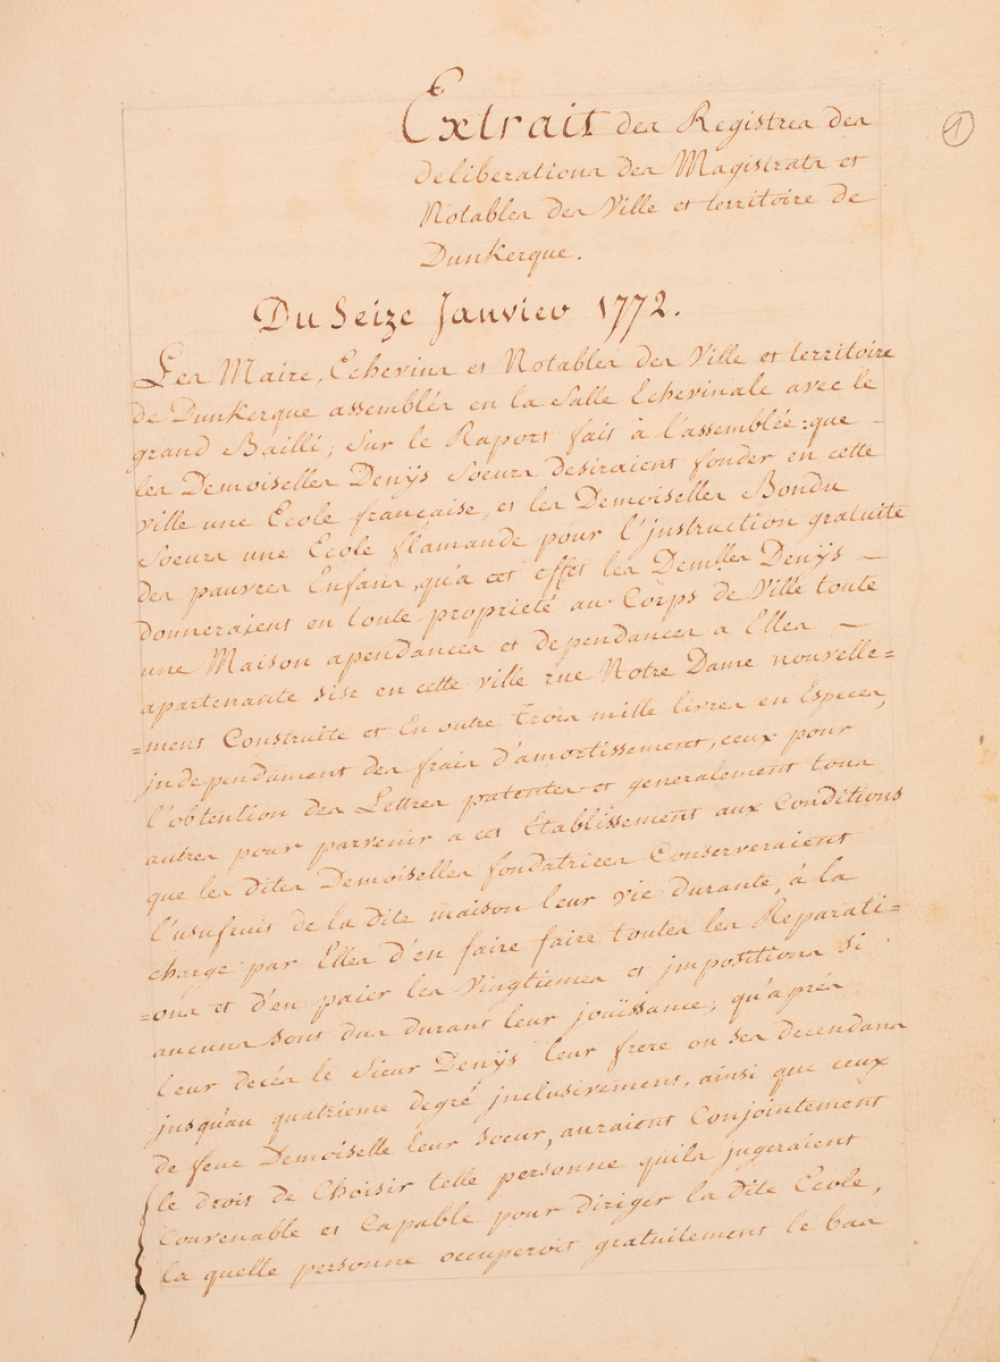 1
Extrait des Registres des
deliberations des Magistrats et
Notables des Ville et territoire de
Dunkerque.
Du Seize Janvier 1772.
Les Maire, Echevins et Notables des Ville et territoire
de Dunkerque assemblés en la Salle Echevinale avec le
grand Bailli; Sur le Raport fait à l'assemblée: que –
les Demoiselles Denÿs Soeurs desiraient fonder en cette
ville une Ecole française, et les Demoiselles Bondu
Soeurs une Ecole flamande pour l'jnstruction gratuite
des pauvres Enfans, qu'a cet effet les Demlles Denÿs –
donneraient en toute proprieté au Corps de Ville toute
une Maison apendances et dependances a Elles –
apartenante sise en cette ville rue Notre Dame nouvelle=
=ment Construite et En outre Trois mille livres en Especes,
jndependament des frais d'amortissement, ceux pour
l'obtention des Lettres patentes et generalement tous
autres pour parvenir a cet Etablissement aux Conditions
que les dites Demoiselles fondatrices Conserveraient
l'usufruit de la dite maison leur vie durante, à la
charge par Elles d'en faire faire toutes les Reparati=
=ons et d'en paier les Vingtiemes et jmpositions si
aucuns sont dus durant leur joüissance; qu'aprés
leur decés le Sieur Denÿs leur frere ou ses decendans
jusqu'au quatrieme degré jnclusivement, ainsi que ceux
de feue Demoiselle leur soeur, auraient Conjointement
le droit de Choisir telle personne quils jugeraient
Convenable et Capable pour diriger la dite Ecole,
la quelle personne occuperoit gratuitement le bas